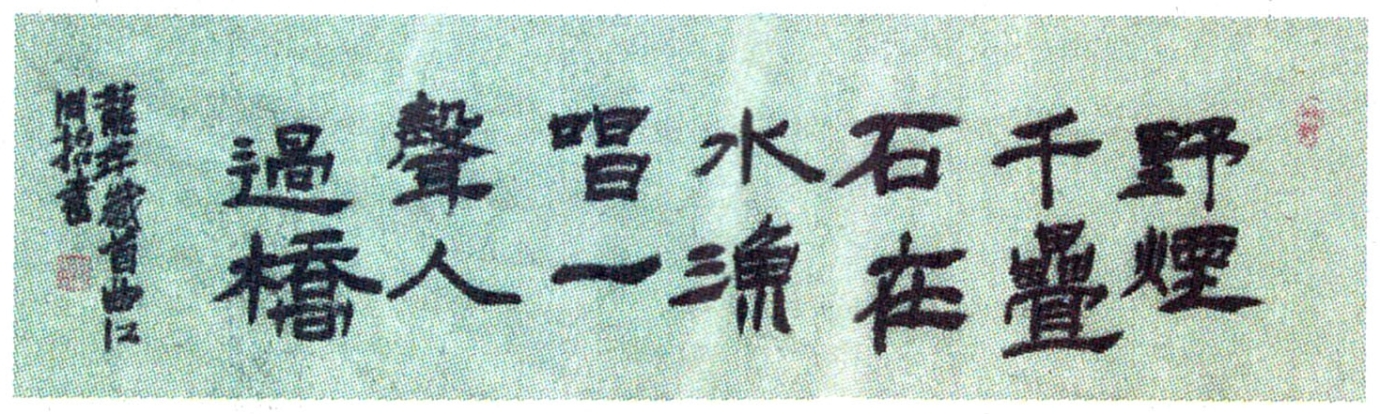 野煙
千疊
石在
水漁
唱一
聲人
過橋
龍年歲首曲江
周招書